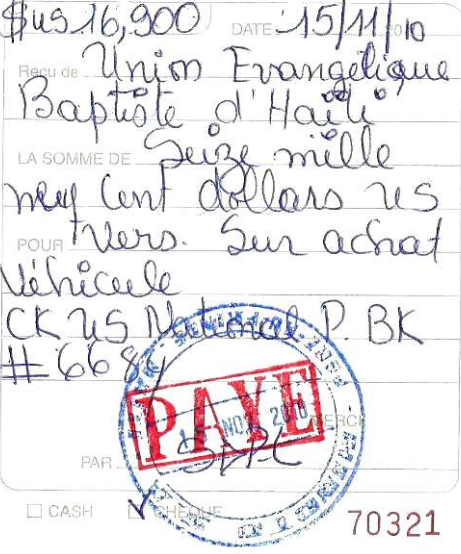 $us 16,900 DATE 15/11/2010
Reçu de Union Evangélique
Baptiste d'Haïti
LA SOMME DE Seize mille
neuf Cent dollars US
POUR Vers. Sur achat
Véhicule
CK US National P. BK
#668
PAYE
NOV 2010 MERCI
PAR
CASH CHEQUE
70321